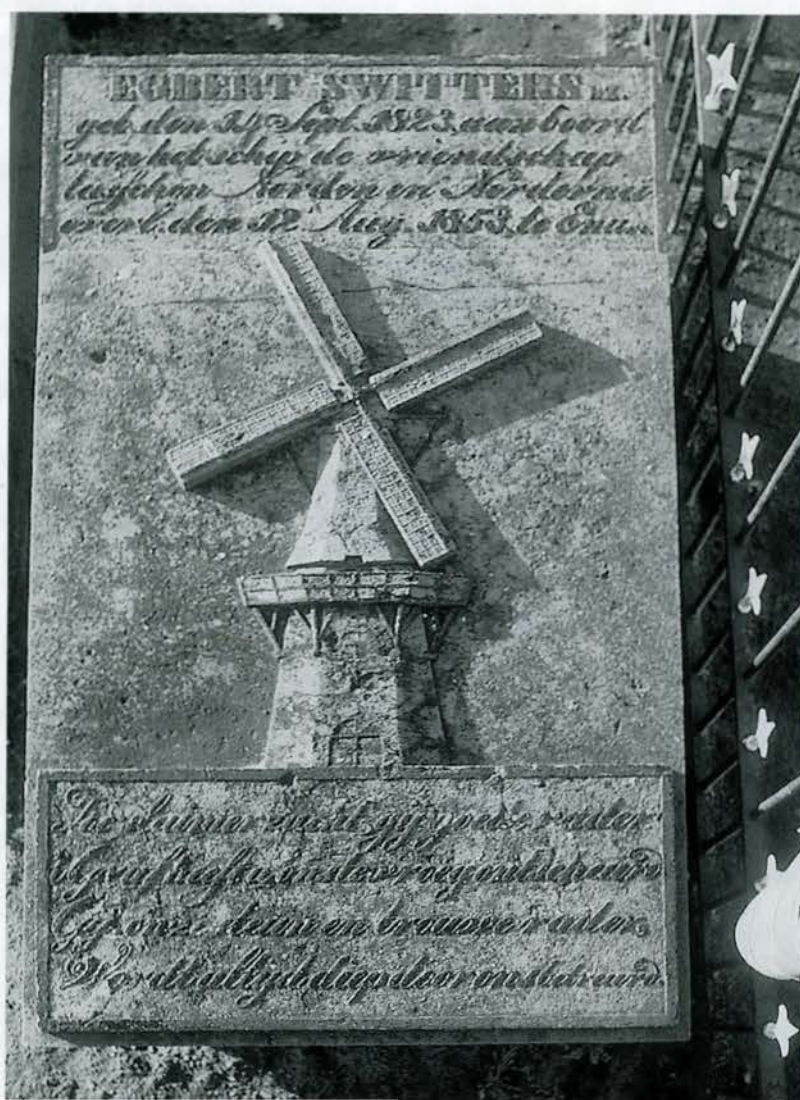 EGBERT SWITTERS
geb. den 14 Sept. 1823, aan boord
van het schip de vriendschap
tusschen Norden en Nordernei
overl. den 12 Aug. 1853, te
Zoo sluimer zacht gij goede vader
't Graf heeft u ons te vroeg ontscheurd
Gij onze steun en trouwe vader,
Wordt altijd diep door ons betreurd.